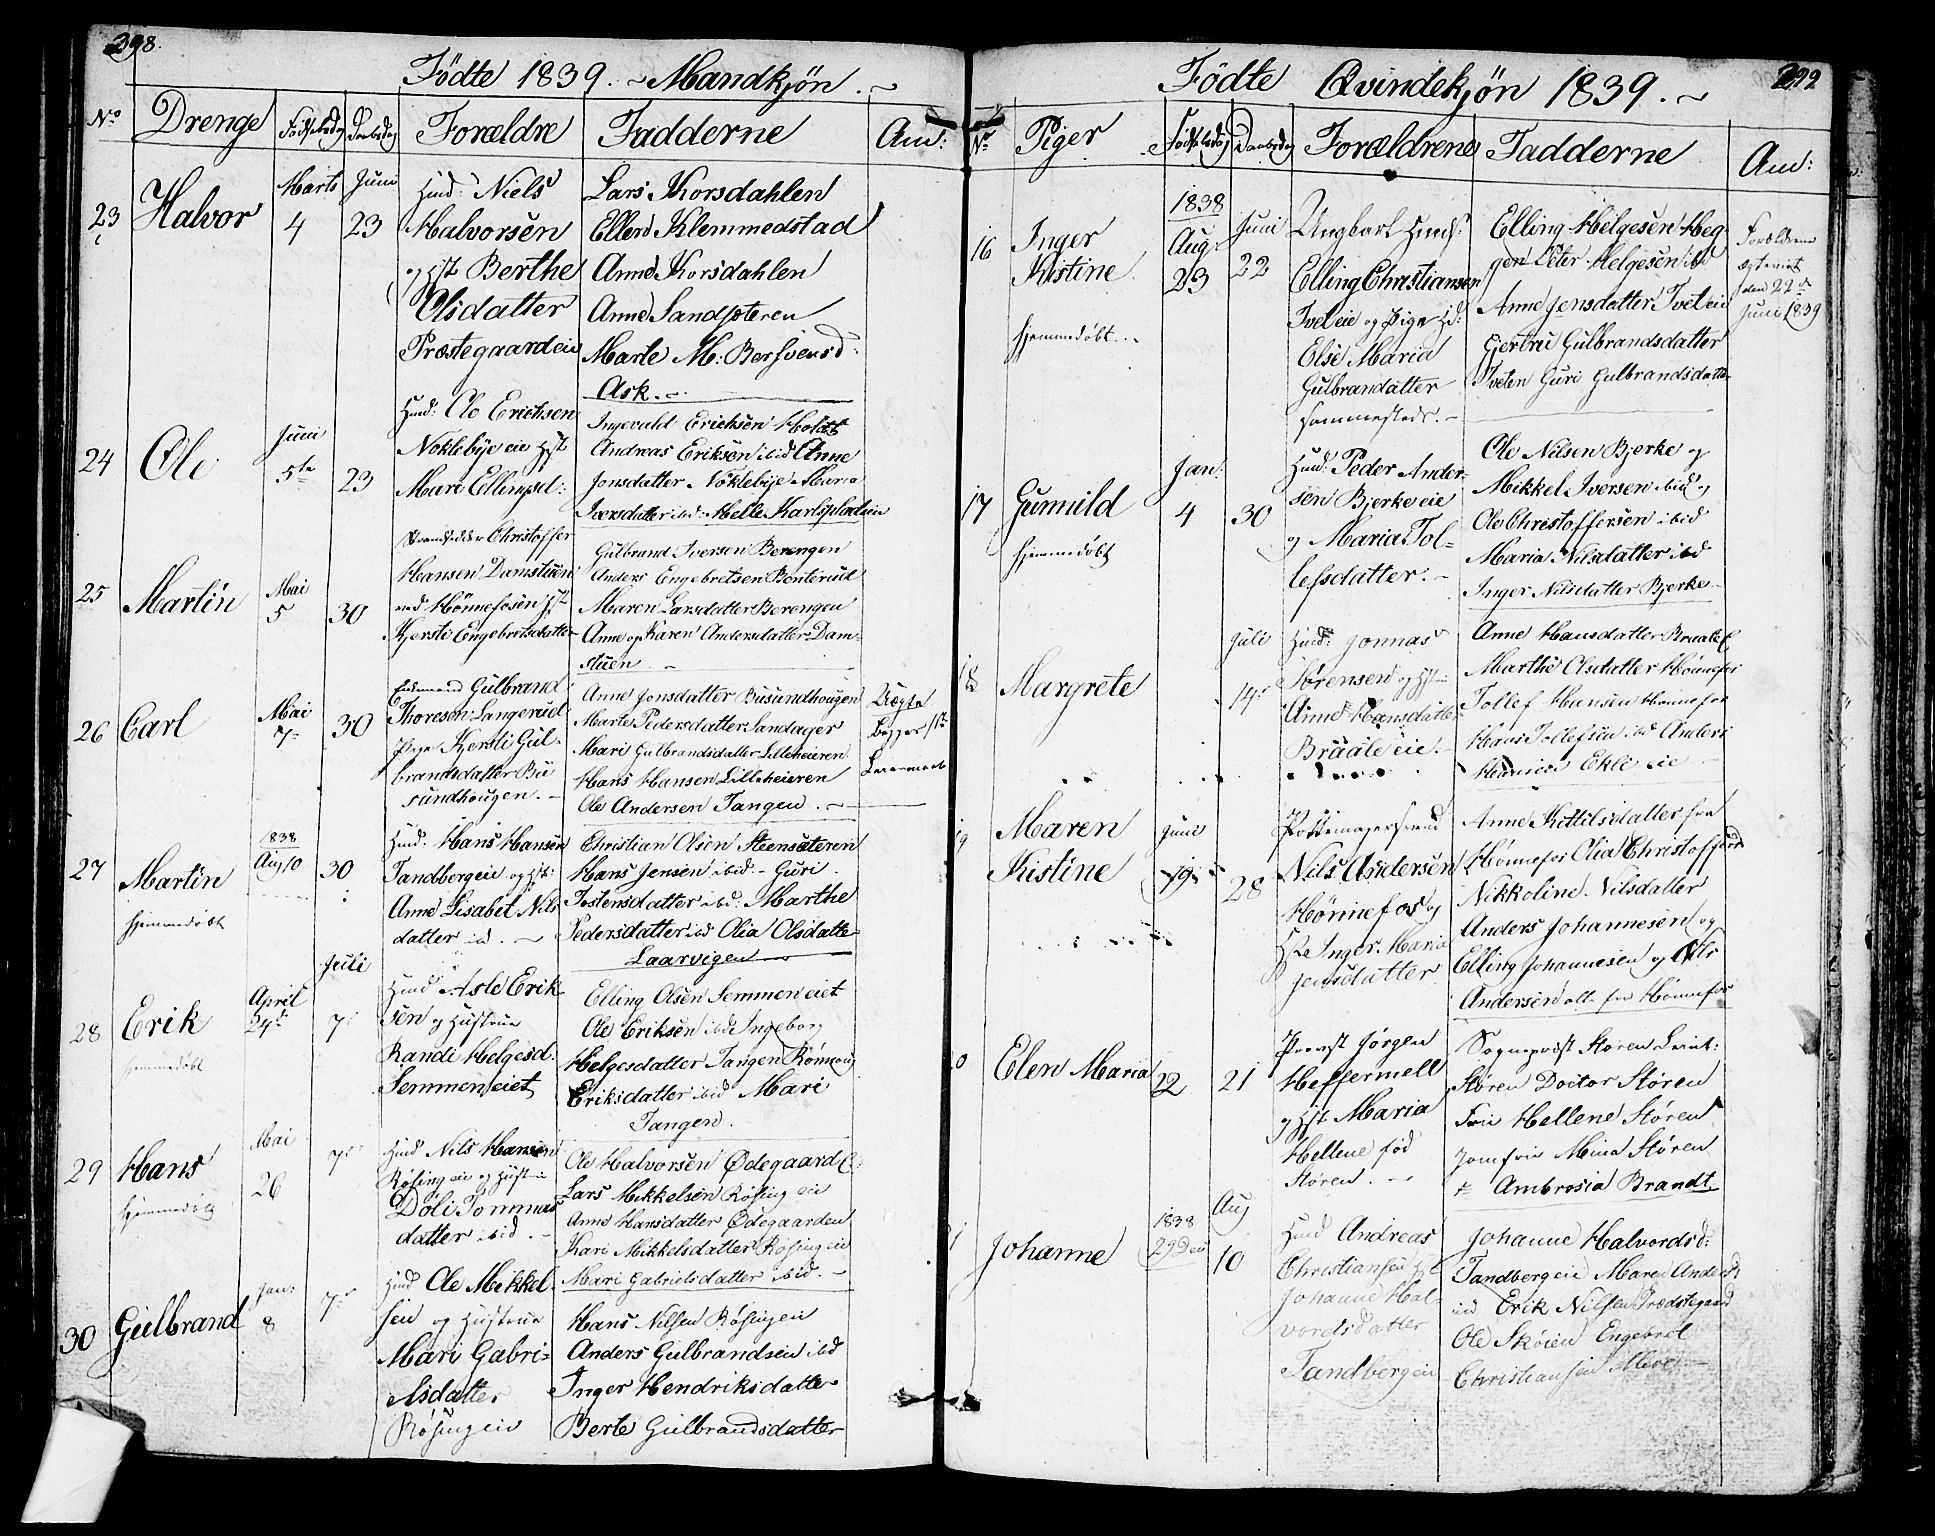 398.
Födte 1839. ~ Mandkjön. ~
No Drenge Födselsdag Daabsdag Forældre Fadderne Anm:
23 Halvor Marts 4 Juni 23
Huusd: Niels
Halvorsen
og Hst Berthe
Olsdatter
Præstegaardeie
Lars Korsdahlen
Ellen Klemmedstad
Anne Korsdahlen
Anne Sandsæteren
Marte M: Bersvensd:
Ask.
24 Ole Juni 5te 23
Huusd: Ole Erichsen
Noklebye eie Hst
Mari Ellingsd:
Ingevald Erichsen Holdt
Andreas Eriksen ibid Anne
Jonsdatter Noklebye Maria
Iversdatter ibid: Helle
25 Martin Mai 5 30
Christoffer
Hansen Damstuen
ved Hönnefosen Hst
Kjersti Engebretsdatter
Gulbrand Iversen Berengen
Anders Engebretsen Benterud
Maren Larsdatter Berengen
Anne og Karen Andersdatter Dam-
stuen.
26 Carl Mai 7de 30
Enkemand Gulbrand
Thoresen Langerud
Pige Kjersti Gul-
brandsdatter Bu
sundhougen.
Anne Jonsdatter Busundhougen
Marte Pedersdatter Sandager
Mari Gulbrandsdatter Lilleheieren
Hans Hansen Lilleheieren
Ole Andersen Tangen.
Uægte
Begges 1ste
Leiermaal
27 Martin 1838 Aug 10 30
hjemmedöbt
Huusd: Hans Hansen
Tandbergeie og Hst:
Anne Lisabet Nils
datter ibid.
Christian Olsen Steensæteren
Hans Jensen ibid - Guri
Tostensdatter ibid: Marthe
Pedersdatter ibid Olia Olsdatte
Laarvigen
28 Erik April 24de Juli 7de
hjemmedöbt
Huusd Asle Erik
sen og Hustrue
Randi Helgesd.
Semmen eiet
Elling Olsen Semmen eiet
Ole Eriksen ibid Ingeborg
Helgesdatter Tangen
Eriksdatter ibid Mari
Tangen.
29 Hans Mai 26 7de
hjemmedöbt
Huusd Nils Hansen
Rösing eie og Hustrue
Doli Tommas
datter ibid.
Ole Halvorsen Ödegaard
Lars Mikkelsen Rösing eie
Anne Hansdatter Ödegaarden
Kari Mikkelsdatter Rösing eie
Mari Gabrielsdatter ibid.
30 Gulbrand Jan: 8 7de
Huusd Ole Mikkel-
sen og Hustrue
Mari Gabri=
elsdatter
Rösing eie
Hans Nilsen Rösing eie
Anders Gulbrandsen ibid
Inger Hendriksdatter
Berte Gulbrandsdatter
399
Födte Qvindekjön 1839. ~
No Piger Födselsdag Daabsdag Forældrene Fadderne Anm:
16 Inger
Kistine 1838 Aug: 23 Juni 22
hjemmedöbt
Ungkarl Huusd:
Elling Christiansen
Tvet eie og Pige Hd:
Else Maria
Gulbrandatter
sammesteds.
Elling Helgesen Heg-
gen Peter Helgesen ibid
Anne Jensdatter Tvet eie
Gjertru Gulbrandsdatter
Tveten Guri Gulbrandsdatter
Forældrene
ægteviet
den 22de
Juni 1839
17 Gunnild Jan: 4 30
hjemmedöbt
Huusd: Peder Ander-
sen Bjerke eie
og Maria Tol=
lefsdatter.
Ole Nilsen Bjerke og
Mikkel Iversen ibid og
Ole Christoffersen ibid
Maria Nilsdatter ibid
Inger Nilsdatter Bjerke
18 Margrete Juli 14de
Huusd: Jonnas
Sörensen og Hst
Anne Hansdatter
Braate eie.
Anne Hansdatter Braate
Marthe Olsdatter Hönnefos
Tollef Hansen Hönnefos
Hans Tollefsen ibid Anders
Hansen Ekli eie
19 Maren
Kistine Juni 19 28
Pottemagersvend
Nils Andersen
Hönnefos og
Hst Inger Maria
Jensdatter
Anne Kittilsdatter fra
Hönnefos Olia Christoffersd
Nikkoline Nilsdatter
Anders Johannesen og
Elling Johannesen og Nils
Andersen alle fra Hönnefos
0 Elen Maria 22 21
Provst Jörgen
Heffermell
og Hst Maria
Hellene föd
Stören.
Sogneprest Stören Leint:
Stören Doctor Stören
Frue Hellene Stören
Jomfru Mina Stören
Ambrosia Brandt.
Johanne 1838 29 Dec Aug 10
Huusd Andreas
Christiansen Hst
Johanne Hal-
vordsdatter
Tandbergeie
Johanne Halvordsd:
Tandbergeie Maren Andersd
ibid Erik Nilsen Prædstegaard
Ole Sköien Engebret
Christiansen